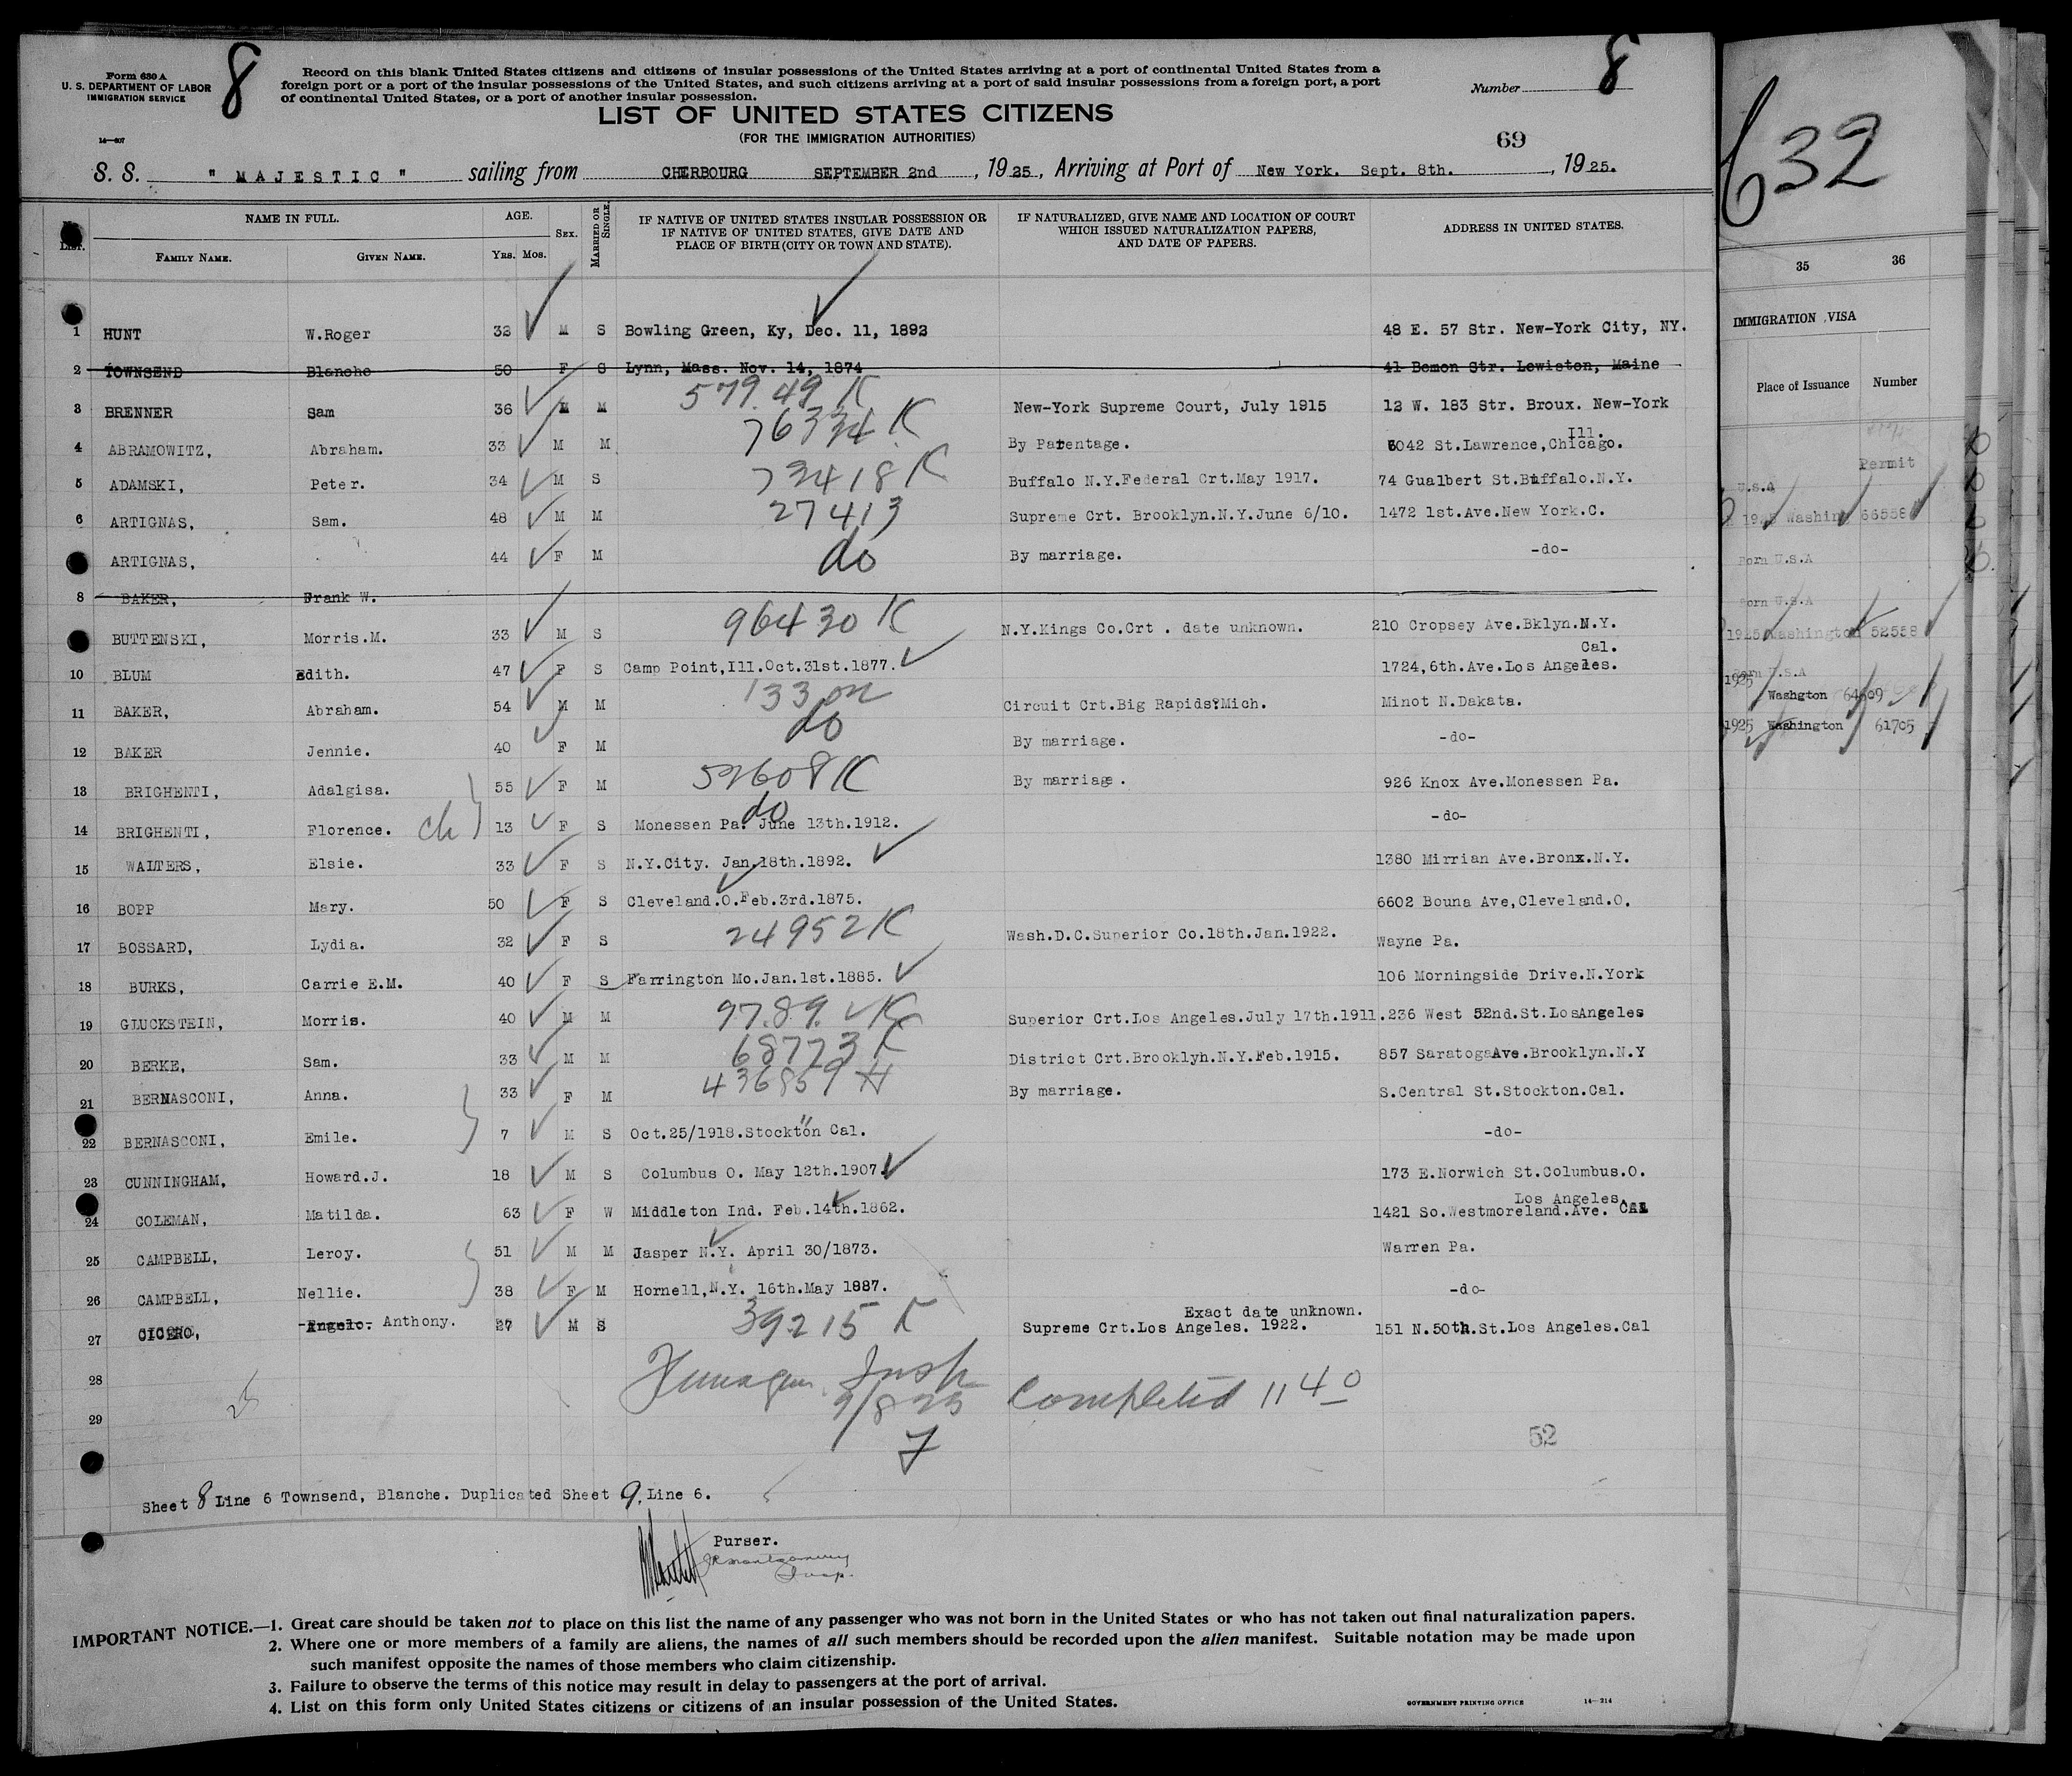 Form 630 A
U. S. DEPARTMENT OF LABOR
IMMIGRATION SERVICE
14—207
8
Record on this blank United States citizens and citizens of insular possessions of the United States arriving at a port of continental United States from a
foreign port or a port of the insular possessions of the United States, and such citizens arriving at a port of said insular possessions from a foreign port, a port
of continental United States, or a port of another insular possession.
Number 8
LIST OF UNITED STATES CITIZENS
(FOR THE IMMIGRATION AUTHORITIES)
69
S. S. " MAJESTIC " sailing from CHERBOURG SEPTEMBER 2nd , 19 25, Arriving at Port of New York. Sept. 8th. , 19 25.
LIST. NAME IN FULL. AGE. SEX. MARRIED OR SINGLE. IF NATIVE OF UNITED STATES INSULAR POSSESSION OR IF NATIVE OF UNITED STATES, GIVE DATE AND PLACE OF BIRTH (CITY OR TOWN AND STATE). IF NATURALIZED, GIVE NAME AND LOCATION OF COURT WHICH ISSUED NATURALIZATION PAPERS, AND DATE OF PAPERS. ADDRESS IN UNITED STATES.
FAMILY NAME. GIVEN NAME. YRS. MOS.
1 HUNT W.Roger 32 M S Bowling Green, Ky, Dec. 11, 1892 48 E. 57 Str. New-York City, NY.
2 TOWNSEND Blanche 50 F S Lynn, Mass. Nov. 14, 1874 41 Bomon Str. Lewiston, Maine
3 BRENNER Sam 36 M M 579.49 K New-York Supreme Court, July 1915 12 W. 183 Str. Broux. New-York
4 ABRAMOWITZ, Abraham. 33 M M 76334 K By Patentage. 6042 St.Lawrence,Chicago. Ill.
5 ADAMSKI, Peter. 34 M S 73418 K Buffalo N.Y.Federal Crt.May 1917. 74 Gualbert St.Buffalo.N.Y.
6 ARTIGNAS, Sam. 48 M M 27413 Supreme Crt. Brooklyn.N.Y.June 6/10. 1472 1st.Ave.New York.C.
ARTIGNAS, 44 F M do By marriage. -do-
8 BAKER, Frank W.
BUTTENSKI, Morris.M. 33 M S 96430 K N.Y.Kings Co.Crt . date unknown. 210 Cropsey Ave.Bklyn.N.Y.
10 BLUM Edith. 47 F S Camp Point,Ill.Oct.31st.1877. 1724,6th.Ave.Los Angeles. Cal.
11 BAKER, Abraham. 54 M M Circuit Crt.Big Rapids?Mich. Minot N.Dakata.
12 BAKER Jennie. 40 F M do By marriage. -do-
13 BRIGHENTI, Adalgisa. 55 F M 52608 K By marriage. 926 Knox Ave.Monessen Pa.
14 BRIGHENTI, Florence. ch 13 F S do Monessen Pa. June 13th.1912. -do-
15 WALTERS, Elsie. 33 F S N.Y.City. Jan.18th.1892. 1380 Mirrian Ave.Bronx.N.Y.
16 BOPP Mary. 50 F S Cleveland.O.Feb.3rd.1875. 6602 Bouna Ave,Cleveland.O.
17 BOSSARD, Lydia. 32 F S 24952 K Wash.D.C.Superior Co.18th.Jan.1922. Wayne Pa.
18 BURKS, Carrie E.M. 40 F S Farrington Mo.Jan.1st.1885. 106 Morningside Drive.N.York
19 GLUCKSTEIN, Morris. 40 M M 97.89. K Superior Crt.Los Angeles.July 17th.1911. 236 West 52nd.St.LosAngeles
20 BERKE, Sam. 33 M M 68773 K District Crt.Brooklyh.N.Y.Feb.1915. 857 SaratogaAve.Brooklyn.N.Y
21 BERNASCONI, Anna. 33 F M 436859 By marriage. S.Central St.Stockton.Cal.
22 BERNASCONI, Emile. 7 M S Oct.25/1918.Stockton Cal. -do-
23 CUNNINGHAM, Howard.J. 18 M S Columbus O. May 12th.1907. 173 E.Norwich St.Columbus.O.
24 COLEMAN, Matilda. 63 F W Middleton Ind. Feb.14th.1862. 1421 So.Westmoreland.Ave. Los Angeles. CAL
25 CAMPBELL, Leroy. 51 M M Jasper N.Y. April 30/1873. Warren Pa.
26 CAMPBELL, Nellie. 38 F M Hornell,N.Y. 16th.May 1887. -do-
27 CICERO, Angelo. Anthony. 27 M S 39215 K Supreme Crt.Los Angeles. 1922. Exact date unknown. 151 N.50th.St.Los Angeles.Cal
28
Insp
9/8 25 Completed 11 40
29
7
52
Sheet 8 Line 6 Townsend, Blanche. Duplicated Sheet 9, Line 6.
Purser.
Montgomery
Insp.
IMPORTANT NOTICE.—1. Great care should be taken not to place on this list the name of any passenger who was not born in the United States or who has not taken out final naturalization papers.
2. Where one or more members of a family are aliens, the names of all such members should be recorded upon the alien manifest. Suitable notation may be made upon
such manifest opposite the names of those members who claim citizenship.
3. Failure to observe the terms of this notice may result in delay to passengers at the port of arrival.
4. List on this form only United States citizens or citizens of an insular possession of the United States.
GOVERNMENT PRINTING OFFICE 14—214
632
35 36
IMMIGRATION VISA
Place of Issuance Number
Permit
U.S.A
1925 Washing 66558
Born U.S.A
Born U.S.A
1925 Washington 52558
Born U.S.A
1925 Washgton 64609
1925 Washington 61705